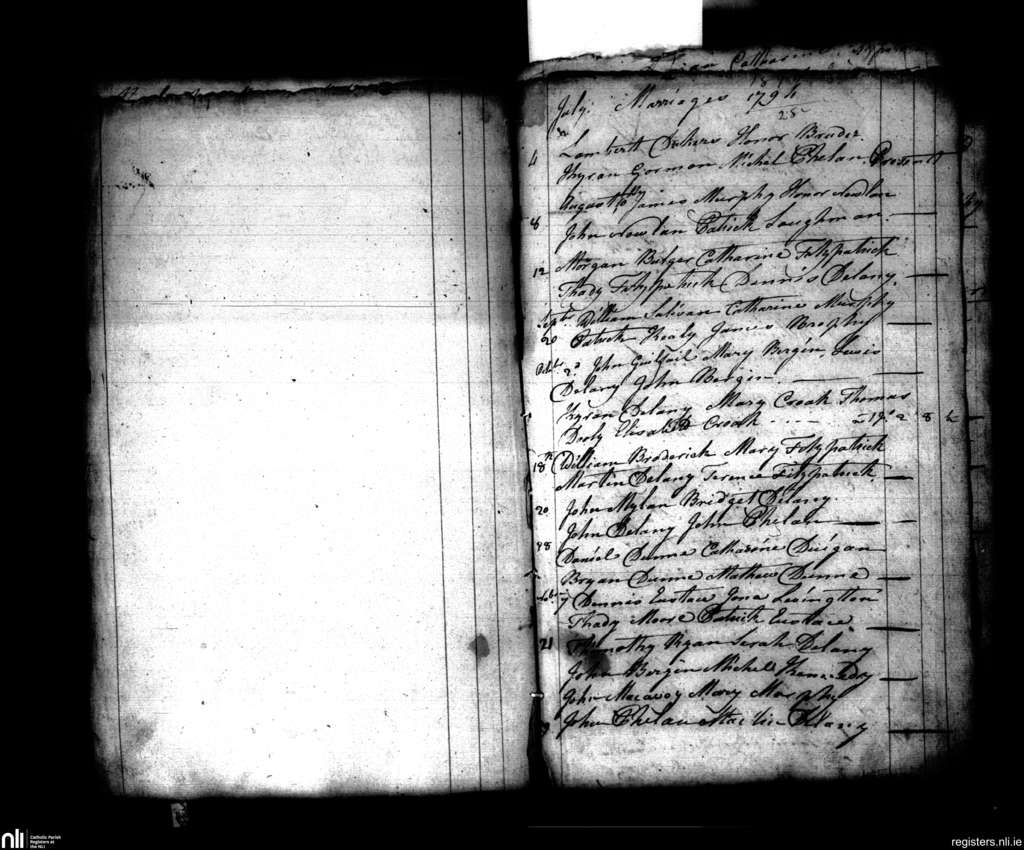 Catharine
July. Marriages 1794
28
4 Lamberth Honor Bruder
Kyran Gorman Michel Phelan Present
August 6th James Murphy Honor Nowlan
8 John Nowlan Patrick Loughman
12 Morgan Burger Catharine Fitzpatrick
Thady Fitzpatrick Dennis Delany
Septbr William Sulivan Catharine Murphy
20 Patrick Healy James Brophy
Octbr 2d John Guilfoil Mary Bergin Lewis
Delany John Bergin
Kyran Delany Mary Croak Thomas
Dooly Elisabeth Croak 2 8
18th William Broderick Mary Fitzpatrick
Martin Delany Terence Fitzpatrick
20 John Mylan Bridget Delany
John Delany John Phelan
28 Daniel Dunne Catharine Duigan
Bryan Dunne Mathew Dunne
7 Dennis Eustace Lexington
Thady Moore Patrick Eustace
21 Timothy Ryan Sarah Delany
John Bergin Michell Kennedy
John Macavoy Mary Murphy
John Phelan Delany
nli
Catholic Parish
Registers at
the NLI
registers.nli.ie